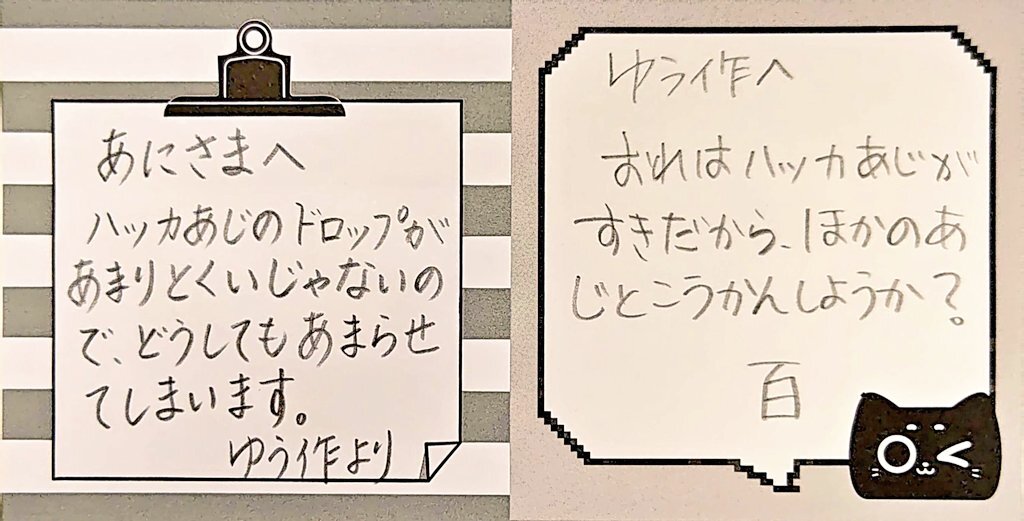 あにさまへ
ハッカあじのドロップが
あまりとくいじゃないの
で、どうしてもあまらせ
てしまいます。
ゆう作より
ゆう作へ
おれはハッカあじが
すきだから、ほかのあ
じとこうかんしようか?
百